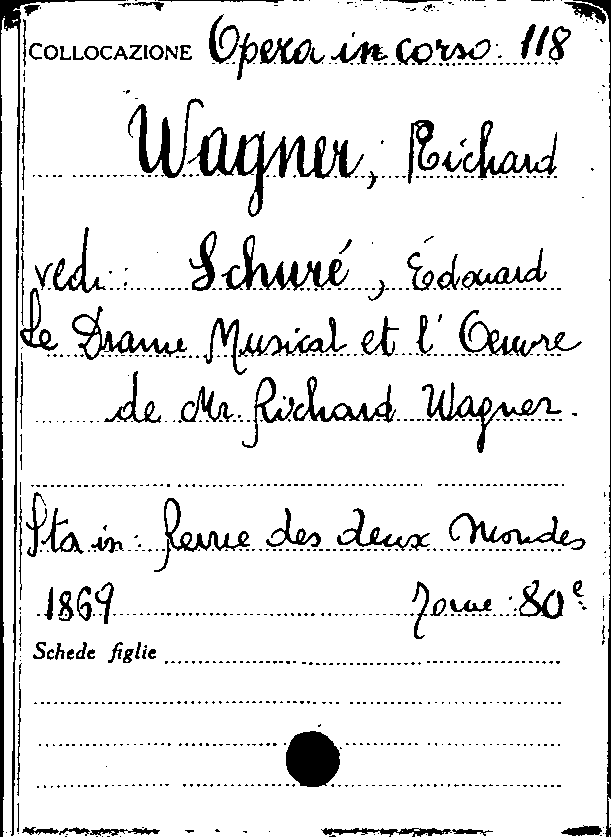 COLLOCAZIONE Opera in corso: 118
Wagner, Richard
vedi: Schuré, Édouard
Le Drame Musical et l'Oeuvre
de Mr. Richard Wagner.
Sta in: Revue des deux Mondes
1869 Tome: 80e
Schede figlie